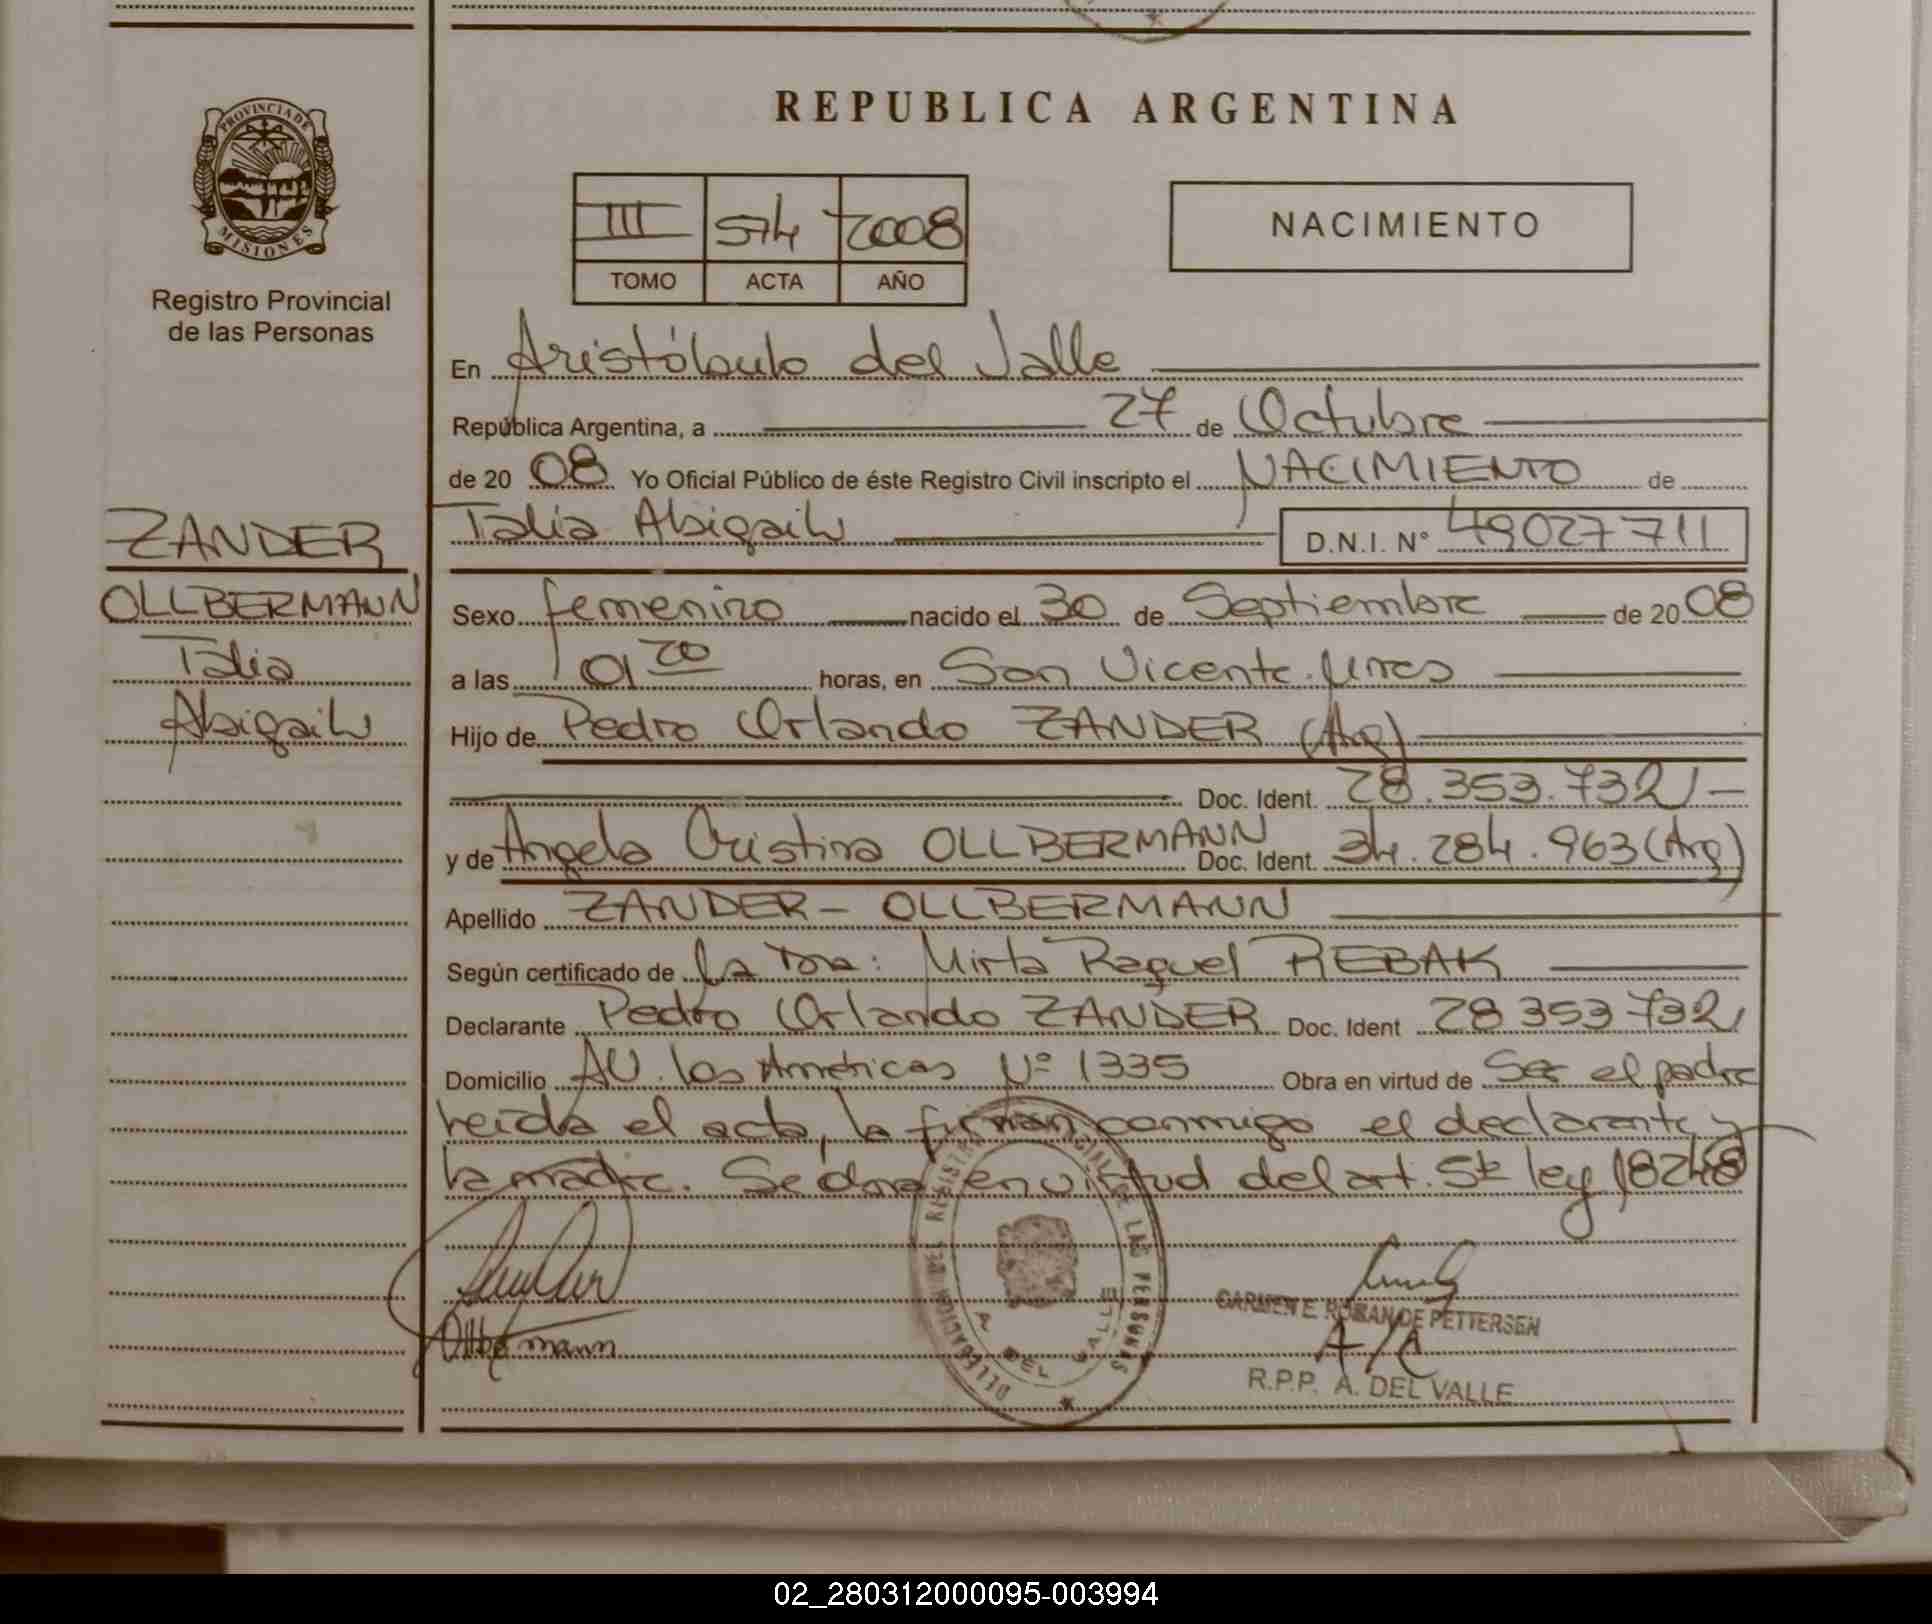 REPUBLICA ARGENTINA
PROVINCIA DE
MISIONES
Registro Provincial
de las Personas
III 574 2008
TOMO ACTA AÑO
NACIMIENTO
En Aristóbulo del Valle
República Argentina, a 27 de Octubre
de 20 08 Yo Oficial Público de éste Registro Civil inscripto el NACIMIENTO de
Talia Abigail D.N.I. N° 49027711
ZANDER
OLLBERMANN
Talia
Abigail
Sexo femenino nacido el 30 de Septiembre de 20 08
a las 01 20 horas, en San Vicente.
Hijo de Pedro Orlando ZANDER (Arg)
Doc. Ident. 28.353.732
y de Angela Cristina OLLBERMANN Doc. Ident. 34.284.963 (Arg)
Apellido ZANDER - OLLBERMANN
Según certificado de La Dra: Mirta Raquel REBAK
Declarante Pedro Orlando ZANDER Doc. Ident 28353732
Domicilio AV. las Américas Nº 1335 Obra en virtud de Ser el padre
leída el acta, la firman conmigo el declarante y
la madre. Se en virtud del art. 5 ley 18248
Ollbermann
DELEGACION REGISTRO PROVINCIAL DE LAS PERSONAS
A DEL VALLE
CARMEN E. DE PETTERSEN
A/C
R.P.P. A. DEL VALLE
02_280312000095-003994